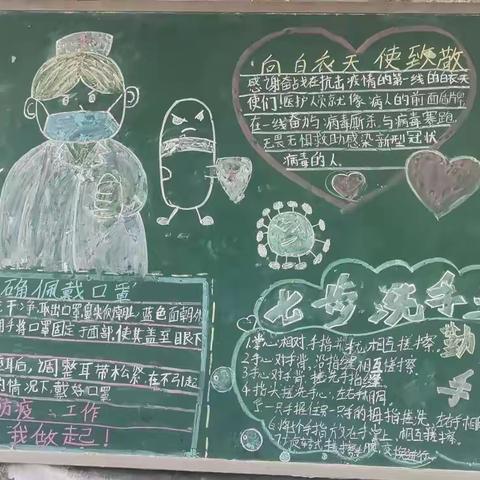 向白衣天使致敬
感谢奋战在抗击疫情的第一线的白衣天
使们医护人员就像病人的前面盾牌
在一线奋力与病毒厮杀与病毒赛跑
无畏无惧救助感染新型冠状
病毒的人
确佩戴口罩
干净取出口罩 蓝色面朝外
用手将口罩固定于面部,使其盖至眼下
耳后,调整耳带松紧在不引起
的情况下,戴好口罩
防疫工作
我做起!
七步洗手
勤
手
1.掌心相对手指并拢相互揉搓
2.手心对手背,沿指缝相互揉搓
3.手心对手背,搓洗手指缝
4.指尖搓洗手心,左右相同
5.一只手握住另一只手的拇指搓洗,左右手相同